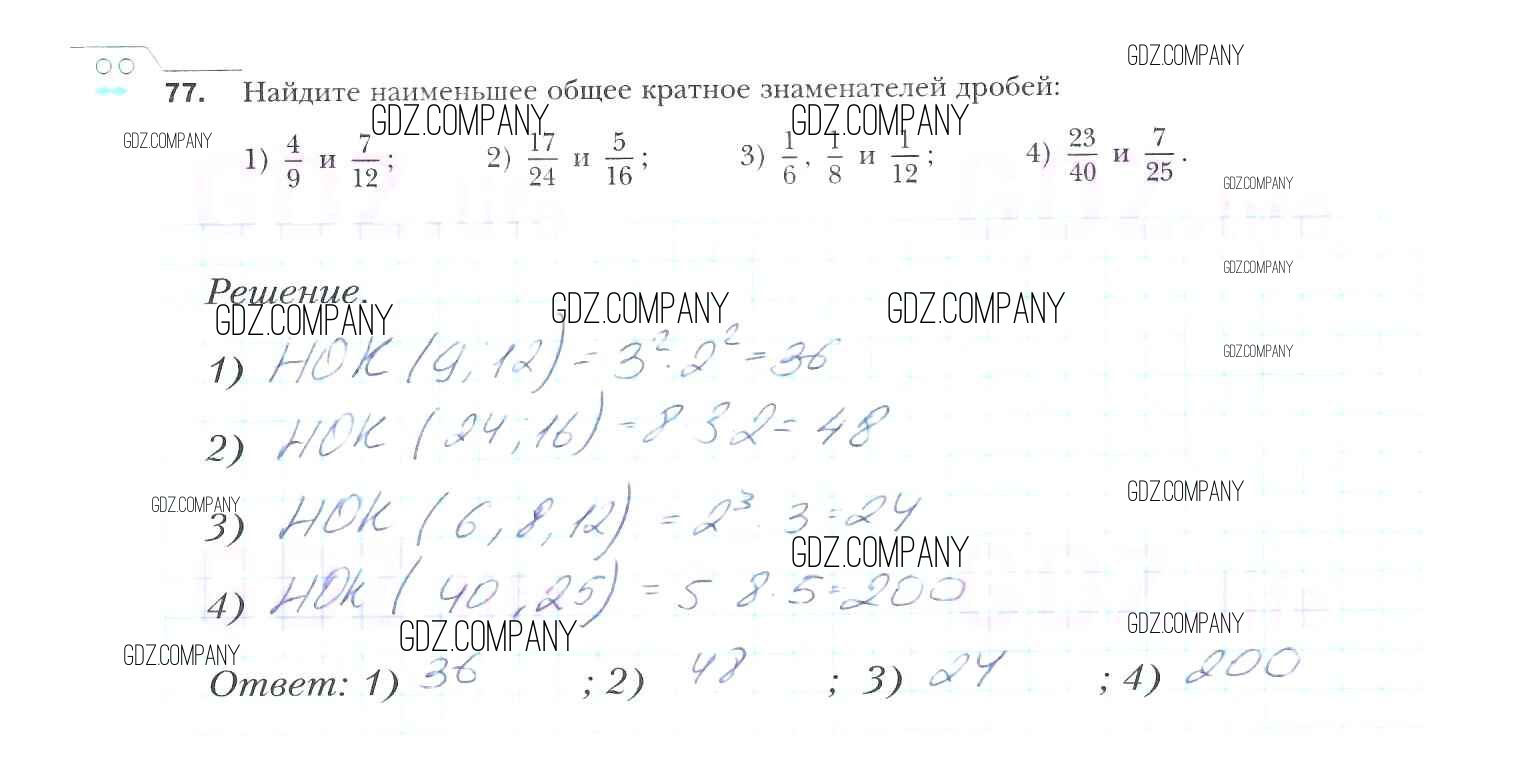 GDZ.COMPANY
77. Найдите наименьшее общее кратное знаменателей дробей:
GDZ.COMPANY GDZ.COMPANY GDZ.COMPANY
1) 4/9 и 7/12; 2) 17/24 и 5/16; 3) 1/6, 1/8 и 1/12; 4) 23/40 и 7/25.
GDZ.COMPANY
GDZ.COMPANY
Решение.
GDZ.COMPANY GDZ.COMPANY GDZ.COMPANY
GDZ.COMPANY
1) НОК (9, 12) = 3²·2² = 36
2) НОК (24, 16) = 8 3 2 = 48
GDZ.COMPANY GDZ.COMPANY
3) НОК (6, 8, 12) = 2³·3 = 24
GDZ.COMPANY
4) НОК (40, 25) = 5 8·5 = 200
GDZ.COMPANY GDZ.COMPANY
GDZ.COMPANY
Ответ: 1) 36 ; 2) 48 ; 3) 24 ; 4) 200